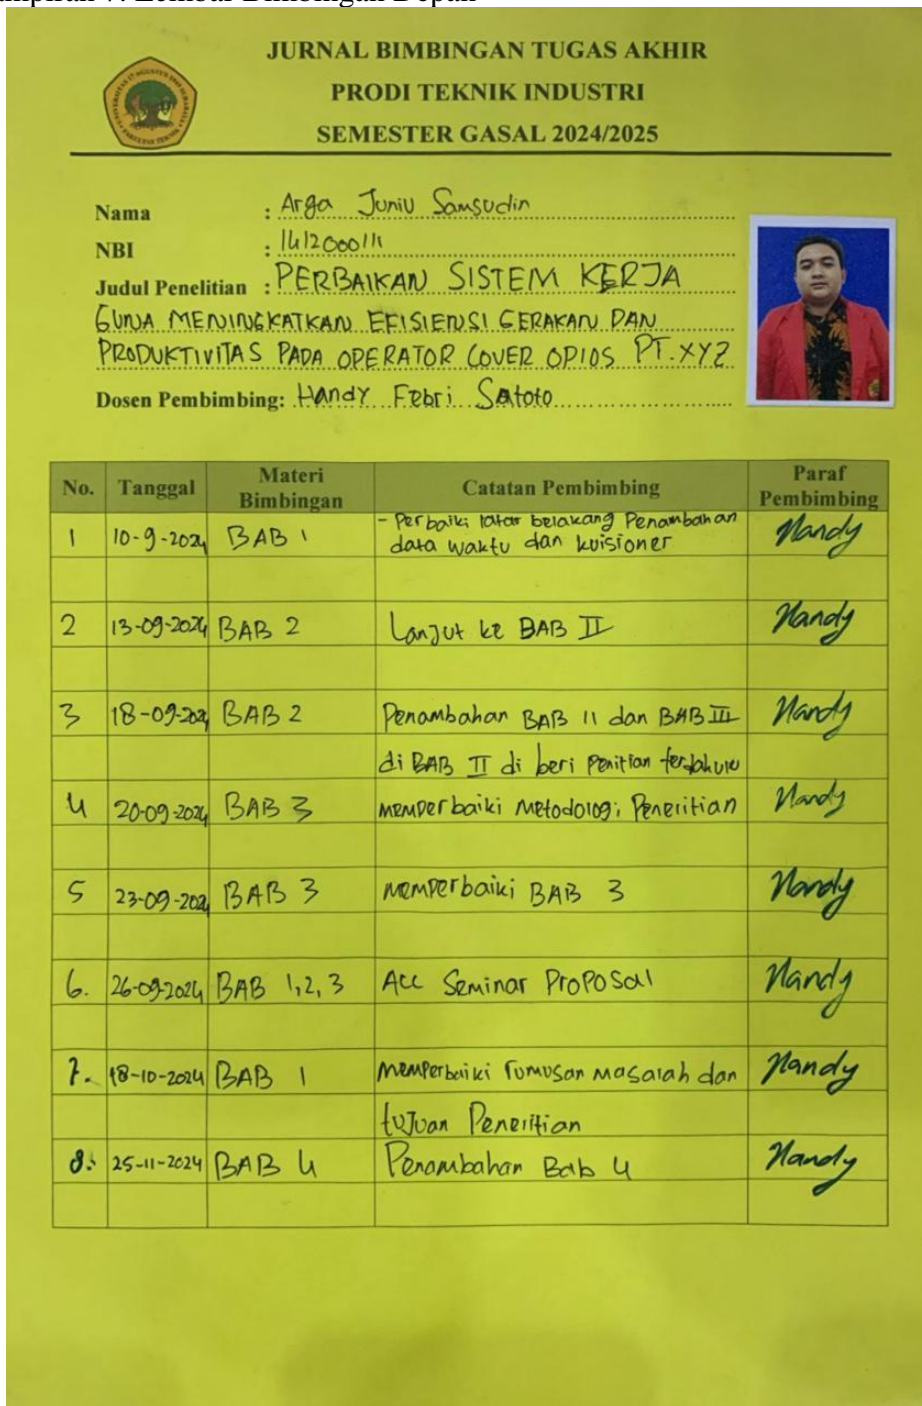 Lembar Bimbingan Depan
JURNAL BIMBINGAN TUGAS AKHIR
PRODI TEKNIK INDUSTRI
SEMESTER GASAL 2024/2025
Nama : Arga Juniu Samsudin
NBI : 1412000111
Judul Penelitian : PERBAIKAN SISTEM KERJA
GUNA MENINGKATKAN EFISIENSI GERAKAN DAN
PRODUKTIVITAS PADA OPERATOR COVER OPIOS PT.XYZ
Dosen Pembimbing: Handy Febri Satoto
No. Tanggal Materi Bimbingan Catatan Pembimbing Paraf Pembimbing
1 10-9-2024 BAB 1 - Perbaiki latar belakang Penambahan Handy
data waktu dan kuisioner
2 13-09-2024 BAB 2 Lanjut ke BAB II Handy
3 18-09-2024 BAB 2 Penambahan BAB II dan BAB III Handy
di BAB II di beri Penitian terdahulu
4 20-09-2024 BAB 3 memperbaiki Metodologi Penelitian Handy
5 23-09-2024 BAB 3 memperbaiki BAB 3 Handy
6. 26-09-2024 BAB 1,2,3 Acc Seminar Proposal Handy
7. 18-10-2024 BAB 1 memperbaiki rumusan masalah dan Handy
tujuan Penelitian
8. 25-11-2024 BAB 4 Penambahan Bab 4 Handy